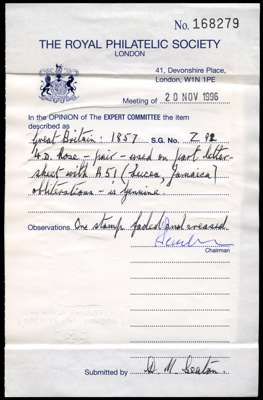 No. 168279
THE ROYAL PHILATELIC SOCIETY
LONDON
41, Devonshire Place,
London, W1N 1PE
Meeting of 20 NOV 1996
In the OPINION of The EXPERT COMMITTEE the item
described as
Great Britain: 1857 S.G. No. Z 92
4.D. Rose - pair - used on part letter-
sheet with A51 (Lucea, Jamaica)
obliterations - is genuine.
Observations One stamp faded and creased.
Chairman
Submitted by D. M. Seaton.